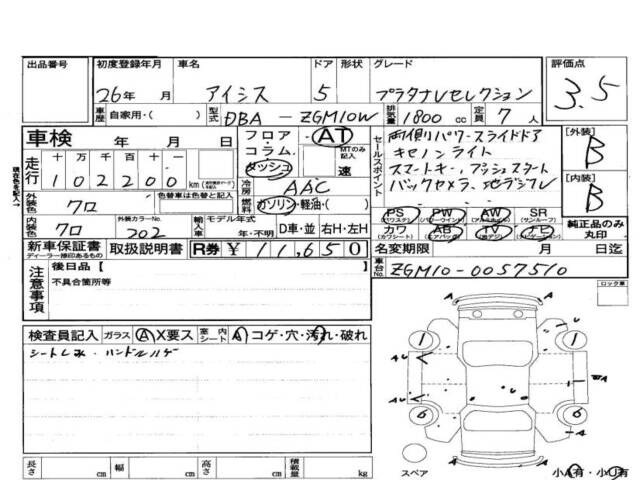 出品番号 初度登録年月 車名 ドア 形状 グレード 評価点
26年 月 アイシス 5 プラタナVセレクション 3.5
車歴 自家用・( ) 型式 DBA - ZGM10W 排気量 1800 cc 定員 7 人
車検 年 月 日
フロア・ AT
コラム・ MTのみ記入
ダッシュ 速
走行 十 万 千 百 十 一
102200 km
冷房 AAC
燃料 ガソリン・軽油・( )
外装色 クロ 色替車は色替と記入
内装色 クロ 外装カラーNo. 202 輸入車 モデル年式 年・不明 D車・並 右H・左H
セールスポイント
両側パワースライドドア
キセノンライト
スマートキー、プッシュスタート
バックカメラ、地デジフル
PS (パワステ) PW (パワーウインド) AW (アルミホイル) SR (サンルーフ)
カワ (カワシート) AB (エアバッグ) TV (地デジ) ナビ (ナビゲーション)
[外装] B
[内装] B
純正品のみ丸印
新車保証書 ディーラー捺印あるもの 取扱説明書 R券 ¥ 11,650 名変期限 月 日迄
車台No. ZGM10-0057510
注意事項 後日品 [ ]
不具合箇所等
ロック車
検査員記入 ガラス A X要ス 室内シート A コゲ・穴・汚れ・破れ
シートしみ・ハンドルハゲ
1 1
AU
A
6 6
スペア
小A有・小U有
長さ cm 幅 cm 高さ cm 積載量 kg